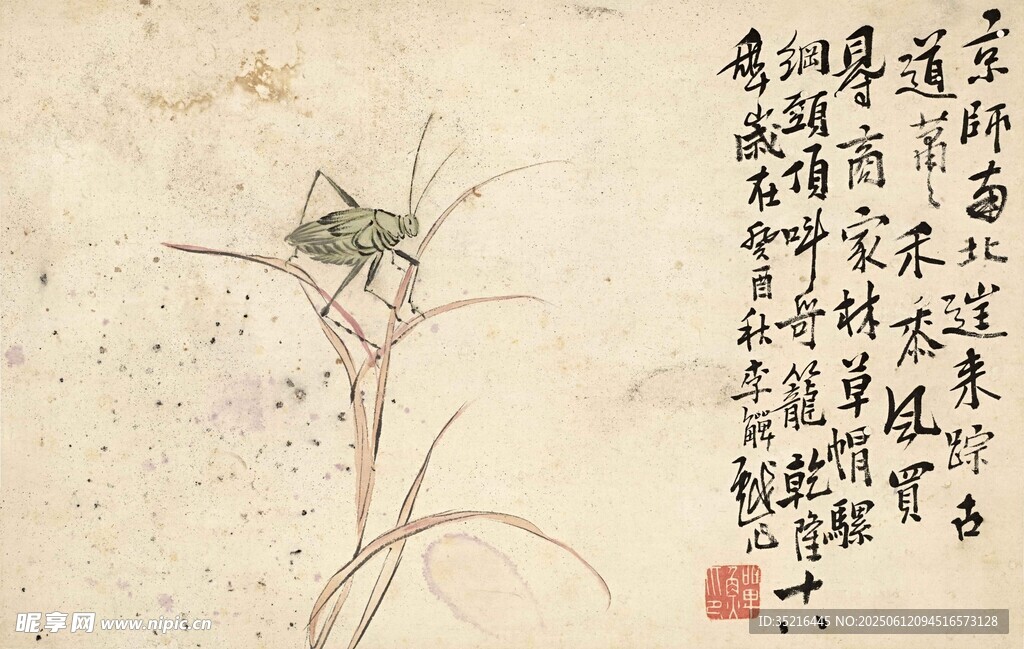 京師南北往来踪古
道蕭〻禾黍風買
得商家林草帽騾
綱頭頂叫哥籠乾隆十八
年歲在癸酉秋李觶戲
昵享网 www.nipic.cn
ID:35216445 NO:20250612094516573128